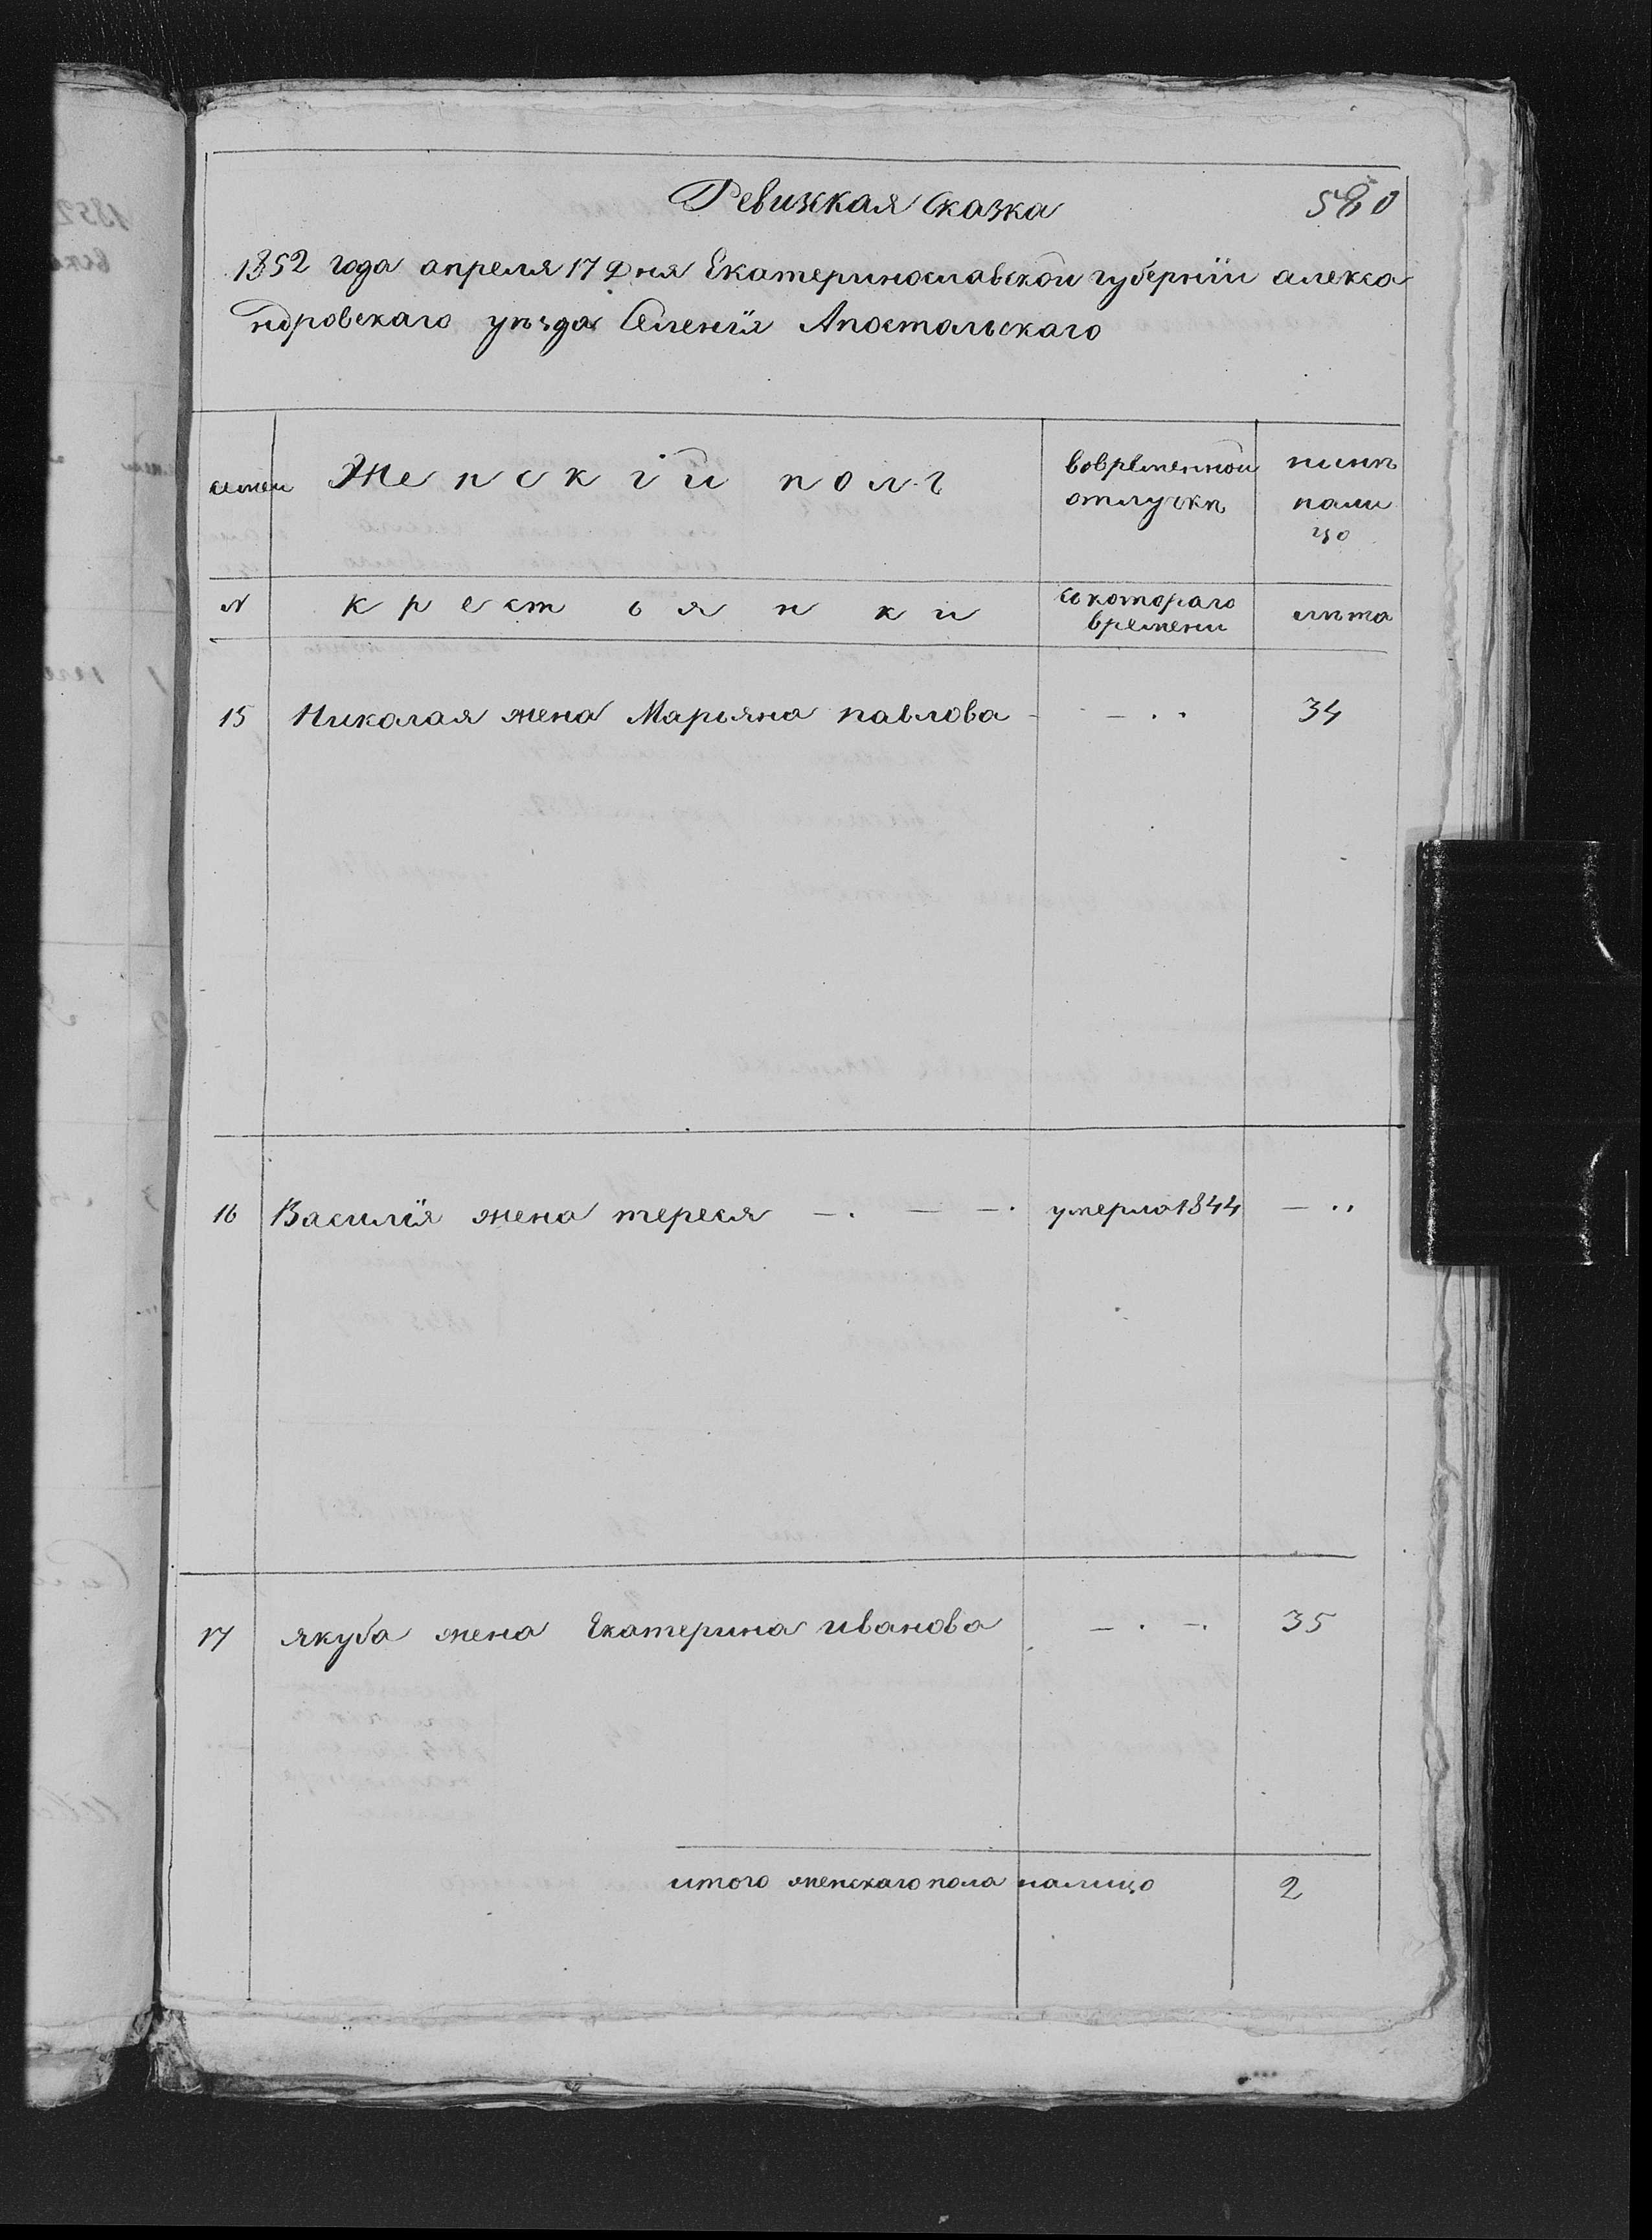 Ревизкая Сказка 580
1852 года апреля 17 Дня Екатеринославской губернїи алекса
ндровскаго уѣзда Селенїя Апостольскаго
семеи Женскїй полъ вовременной отлучкѣ нынѣ нали цо
№ крестьянки съ котораго времени лѣта
15 Николая жена Марьяна павлова - - . . 34
16 Василїя жена тереся - . - - . умерла 1844 - . .
17 якуба жена Екатерина иванова - . - . 35
итого женскаго пола налицо 2